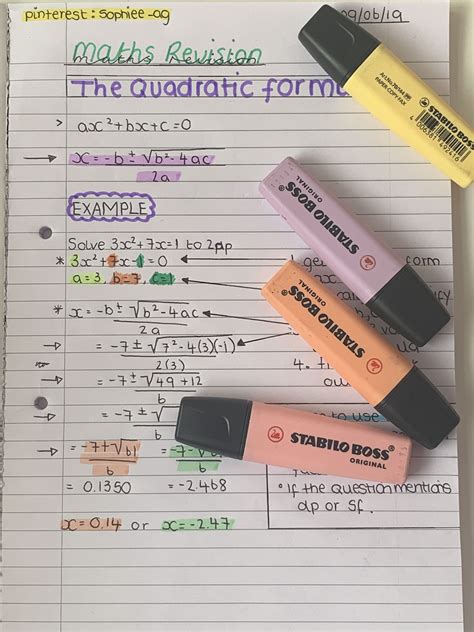 pinterest : sophiee_og
09/06/19
Maths Revision
maths revision
The Quadratic form
> ax²+bx+c=0
→ x = -b ± √b²-4ac
2a
EXAMPLE
Solve 3x²+7x=1 to 2dp
* 3x²+7x-1=0
a=3, b=7, c=1
* x = -b ± √b²-4ac
2a
→ = -7 ± √7²-4(3)(-1)
2(3)
→ = -7 ± √49+12
6
→ = -7 ± √
6
→ = -7+√61 = -7-√
6 6
= 0.1350 = -2.468
x = 0.14 or x = -2.47
1. ge form
4. t
ou
to use
• If the Question mentions
dp or sf.
STABILO BOSS
PAPER COPY FAX
4 006381 492416
STABILO BOSS
ORIGINAL
STABILO BOSS
ORIGINAL
STABILO BOSS
ORIGINAL